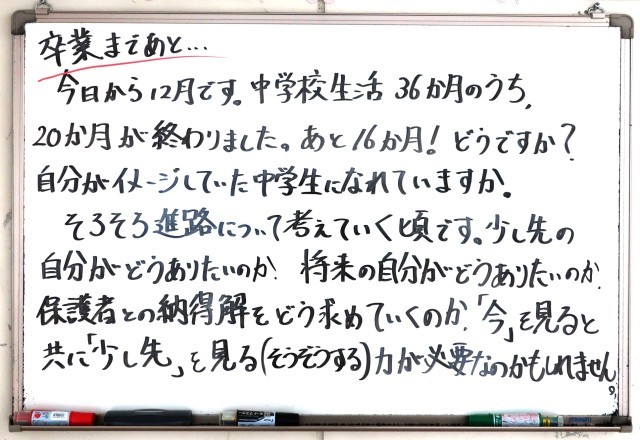 卒業まであと…
今日から12月です。中学校生活36か月のうち、
20か月が終わりました。あと16か月！どうですか？
自分がイメージしていた中学生になれていますか。
そろそろ進路について考えていく頃です。少し先の
自分がどうありたいのか、将来の自分がどうありたいのか、
保護者との納得解をどう求めていくのか、「今」を見ると
共に「少し先」を見る(そうぞうする)力が必要なのかもしれません。